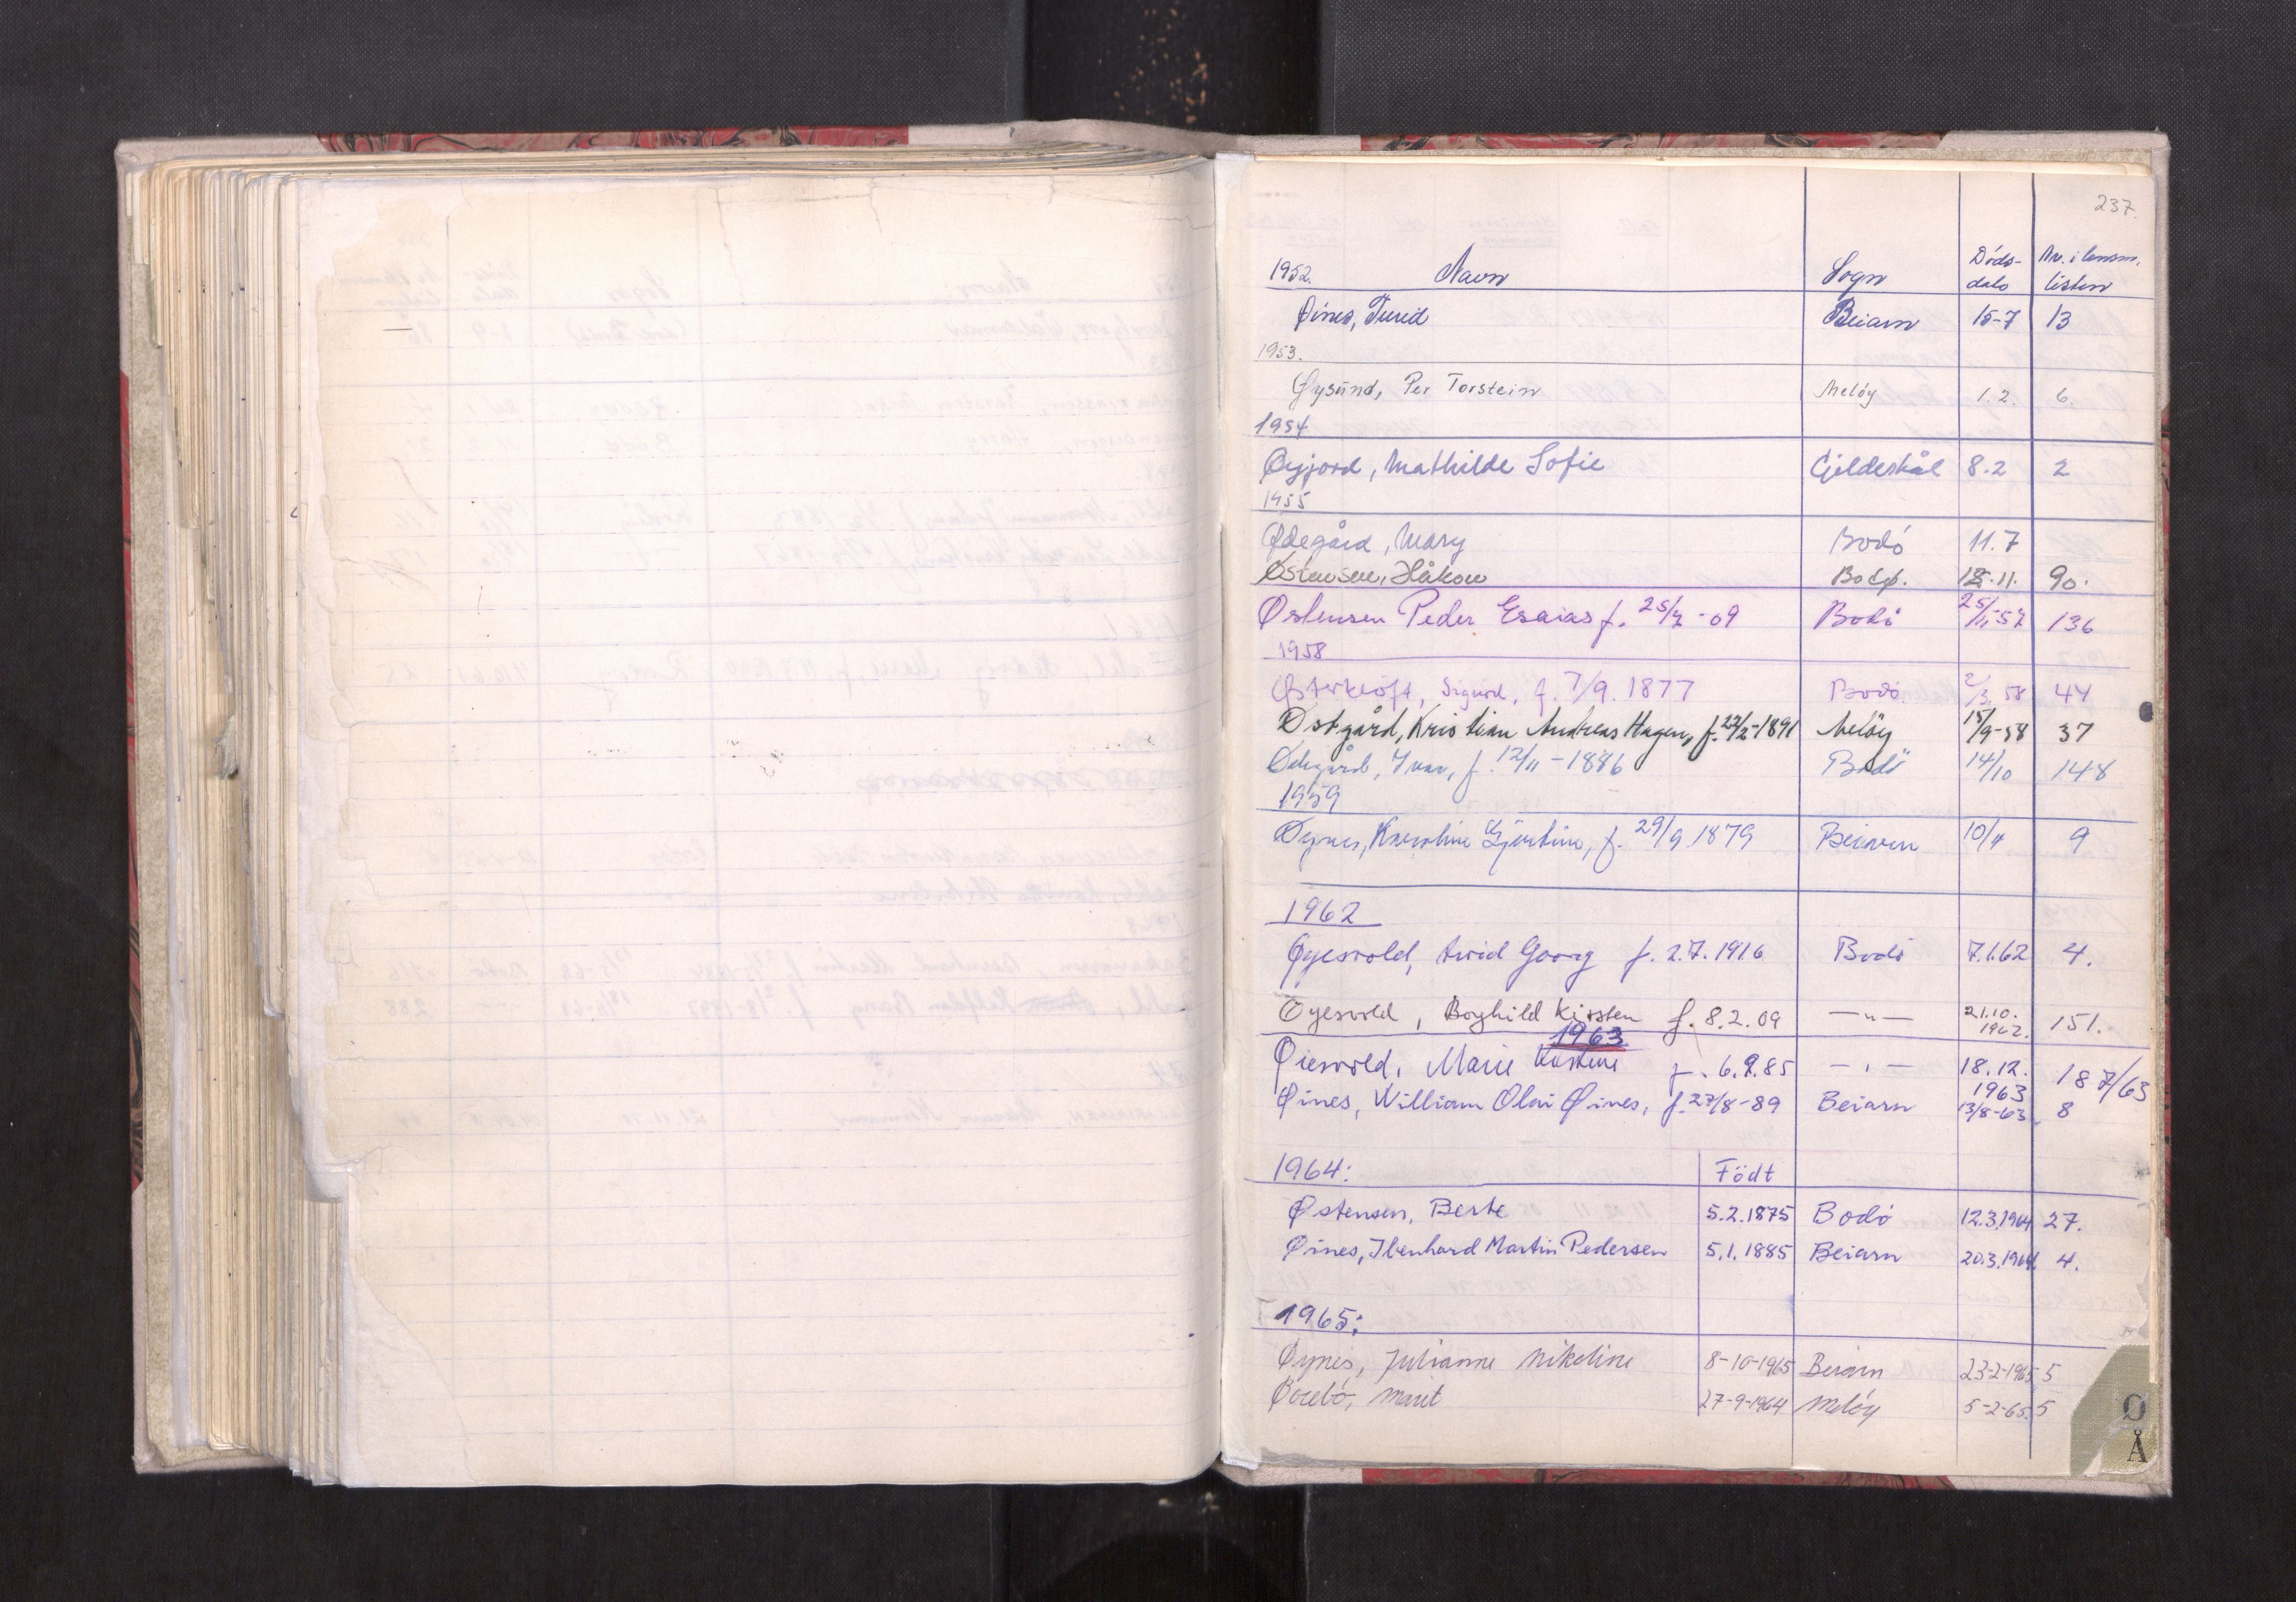 237.
1952. Navn Sogn Döds-dato Nr. i lensm. listen
Øines, Turid Beiarn 15-7 13
1953.
Øysund, Per Torstein Melöy 1.2. 6.
1954
Øyjord, Mathilde Sofie Gildeskål 8.2 2
1955
Ødegård, Mary Bodó 11.7
Østensen, Håkon Bodø. 11. 90.
Østensen Peder Esaias f. 25/2 -09 Bodö 25/11-57 136
1958
Østerkløft, Sigurd, f. 7/9. 1877 Bodö 2/3 58 44
Østgård, Kristian Andreas Hagen, f. 22/2-1891 Melöy 15/9-58 37
Ødegård, Ivar, f. 12/11-1886 Bodö 14/10 148
1959
Øynes, Karoline Kjerstine, f. 29/9 1879 Beiarn 10/4 9
1962
Øyesvold, Arvid Georg f. 2.7.1916 Bodö 7.1.62 4.
Öyesvold, Borghild Kirsten f. 8.2.09 —"— 21.10. 1962. 151.
1963
Øiesvold, Marie Kirstine f. 6.9.85 — " — 18.12. 1963 187/63
Øines, William Olai Øines, f. 27/8-89 Beiarn 13/8-63 8
1964: Födt
Østensen, Berte 5.2.1875 Bodó 12.3.1964 27.
Øines, Ibenhard Martin Pedersen 5.1.1885 Beiarn 20.3.1964 4.
1965:
Øynes, Julianne Nikoline 8-10-1965 Beiarn 23-2-1965 5
27-9-1964 Melöy 5-2-65 5
Ø
Å